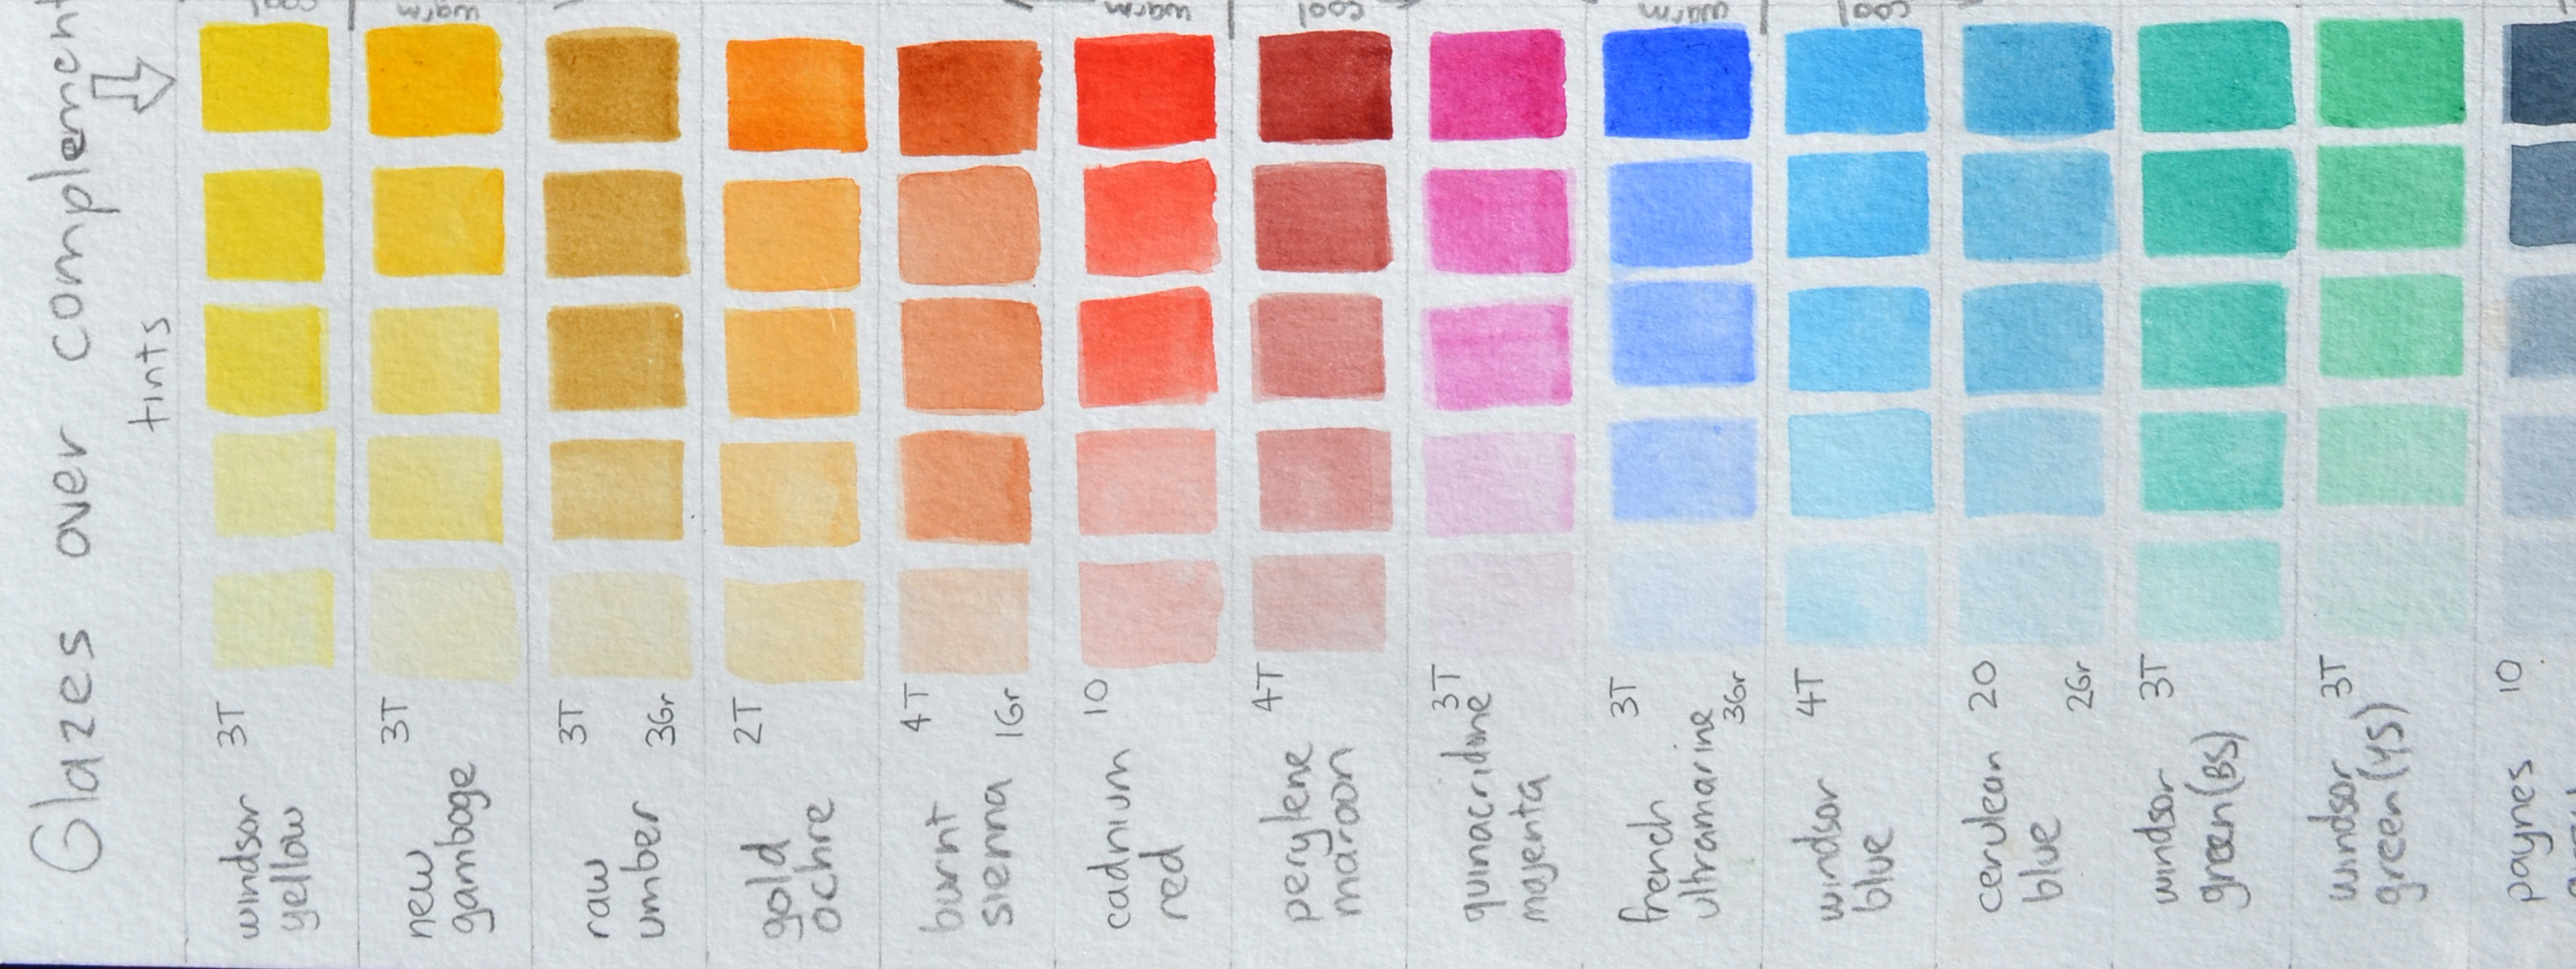 Glazes over complement
tints
cool
warm
warm
cool
warm
cool
windsor
yellow
3T
new
gamboge
3T
raw
umber
3T
3Gr
gold
ochre
2T
burnt
sienna
4T
1Gr
cadnium
red
10
perylene
maroon
4T
quinacridone
majenta
3T
french
ultramarine
3T
3Gr
windsor
blue
4T
cerulean
blue
20
2Gr
windsor
green (BS)
3T
windsor
green (YS)
3T
paynes
10